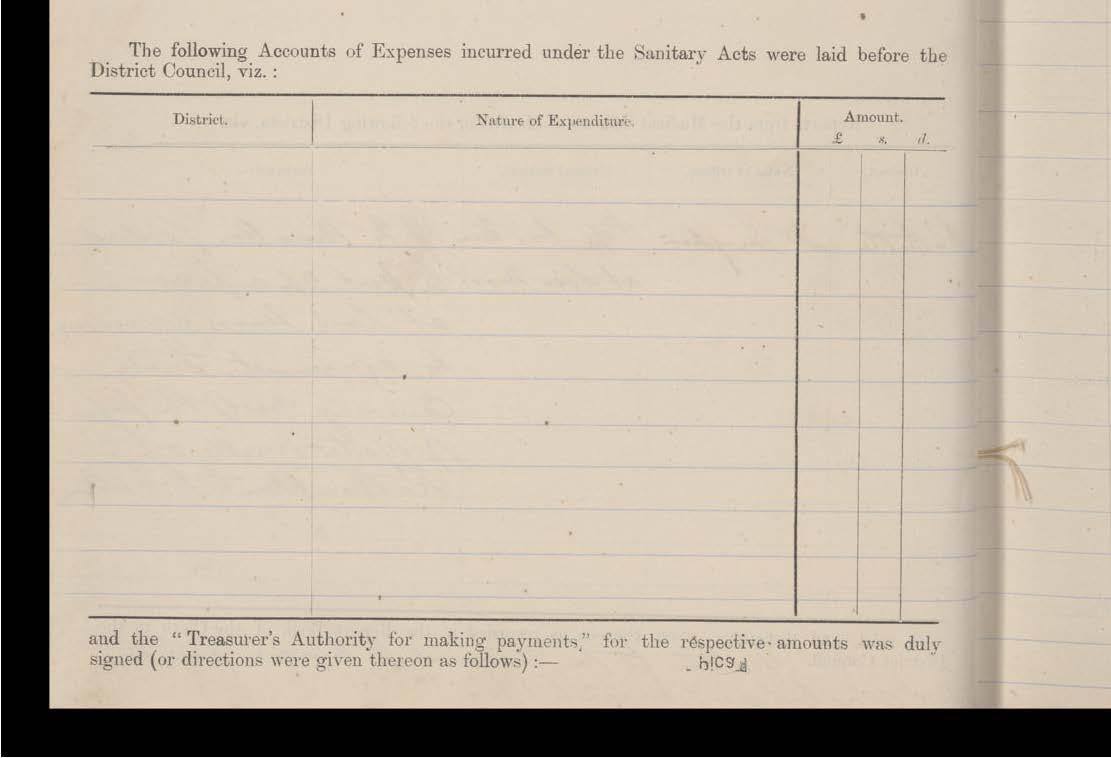 The following Accounts of Expenses incurred under the Sanitary Acts were laid before the
District Council, viz. :
District.
Nature of Expenditure.
Amount.
£ s. d.
and the “Treasurer’s Authority for making payments,” for the respective amounts was duly
signed (or directions were given thereon as follows) :—